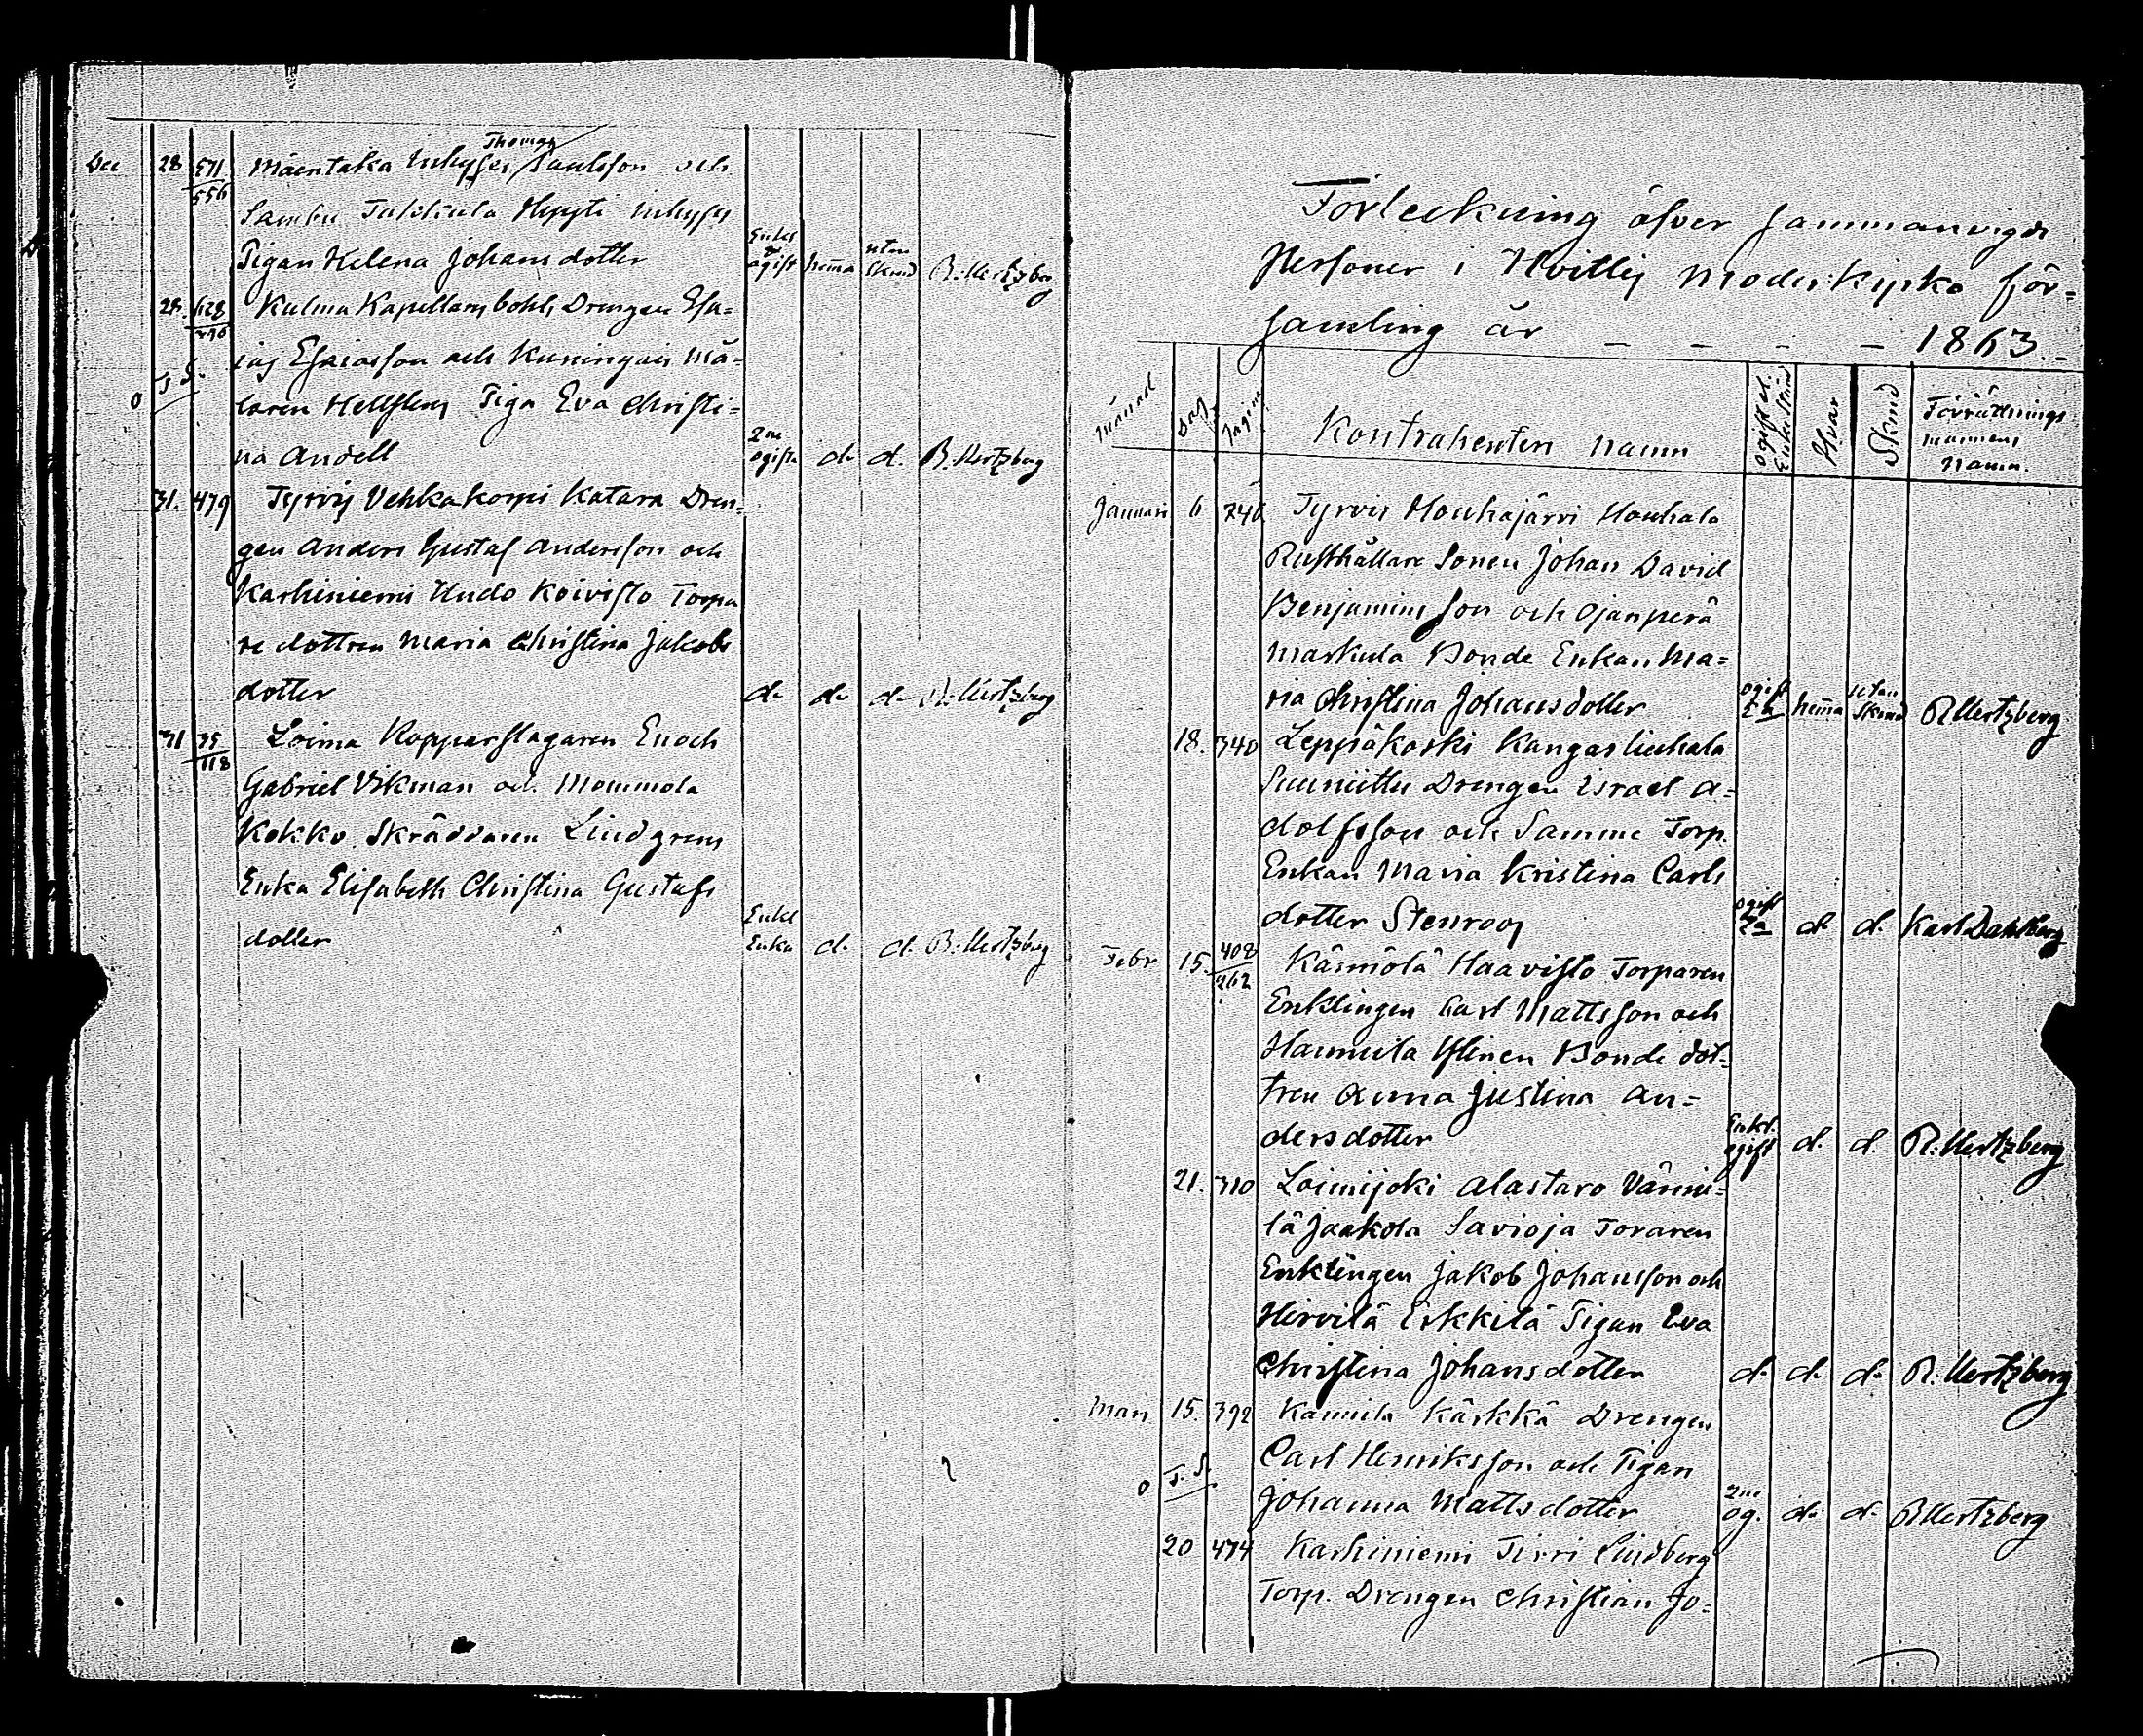 Dec 28 571/556 Mäentaka Inhyses Thomas Paulsson och
Sambu Tulkkula Hyyti inhyses
Pigan Helena Johansdotter Enkl & ogift hema utan Skind R. Hertzberg
28. 628 Kulma Kapellans bohls Drengen Esa=
ias Esaiasson och Kuningais Må=
0 T. S. laren Hellstens Piga Eva Christi=
na Andell 2ne ogifta d. d. R. Hertzberg
31. 479 Tyrvis Vehkakorpi Katara Dren=
gen Anders Gustaf Andersson och
Karhiniemi Uudo Koivisto Torpa
re dottren Maria Christina Jakobs
dotter d. d. d. R. Hertzberg
31 35/118 Loima Kopparslagaren Enoch
Gabriel Vikman och Mommola
Kokko Skräddaren Lindgrens
Enka Elisabeth Christina Gustafs
dotter Enkl Enka d. d. R. Hertzberg
Förteckning öfver sammanvigde
Personer i Hvittis Moderkyrko för=
samling år - - - - 1863.-
Månad Dag Pagina Kontrahenten namn Ogift el. Enkestånd Hvar Skind Förrättnings mannens namn.
Januari 6 246 Tyrvis Houhajärvi Houhala
Rusthållare Sonen Johan David
Benjaminsson och Ojanperä
Markula Bonde Enkan Ma=
ria Christina Johansdotter ogift Ea hema utan Skind R Hertzberg
18. 340 Leppäkoski Kangas
Suuniittu Drengen Israel A=
dolfsson och Samme Torp.
Enkan Maria Kristina Carls
dotter Stenroos ogift Ea d. d. Karl Dahlberg
Febr 15. 408/262 Käsmölä Haavisto Torparen
Enklingen Carl Mattsson och
Haunula Ylinen Bonde dot=
tren Anna Justina An=
dersdotter Enkl. ogift d. d. R. Hertzberg
21. 310 Loimijoki Alastaro Vänni=
lä Jaakola Savioja Toraren
Enklingen Jakob Johansson och
Hirvilä Erkkilä Pigan Eva
Christina Johansdotter d. d. d. R. Hertzberg
Mars 15. 392 Kamila Kärkkä Drengen
0 T. S. Carl Henriksson och Pigan
Johanna Mattsdotter 2ne og. d. d. R Hertzberg
20 474 Karhiniemi Tirri Lindberg
Torp. Drengen Christian Jo=